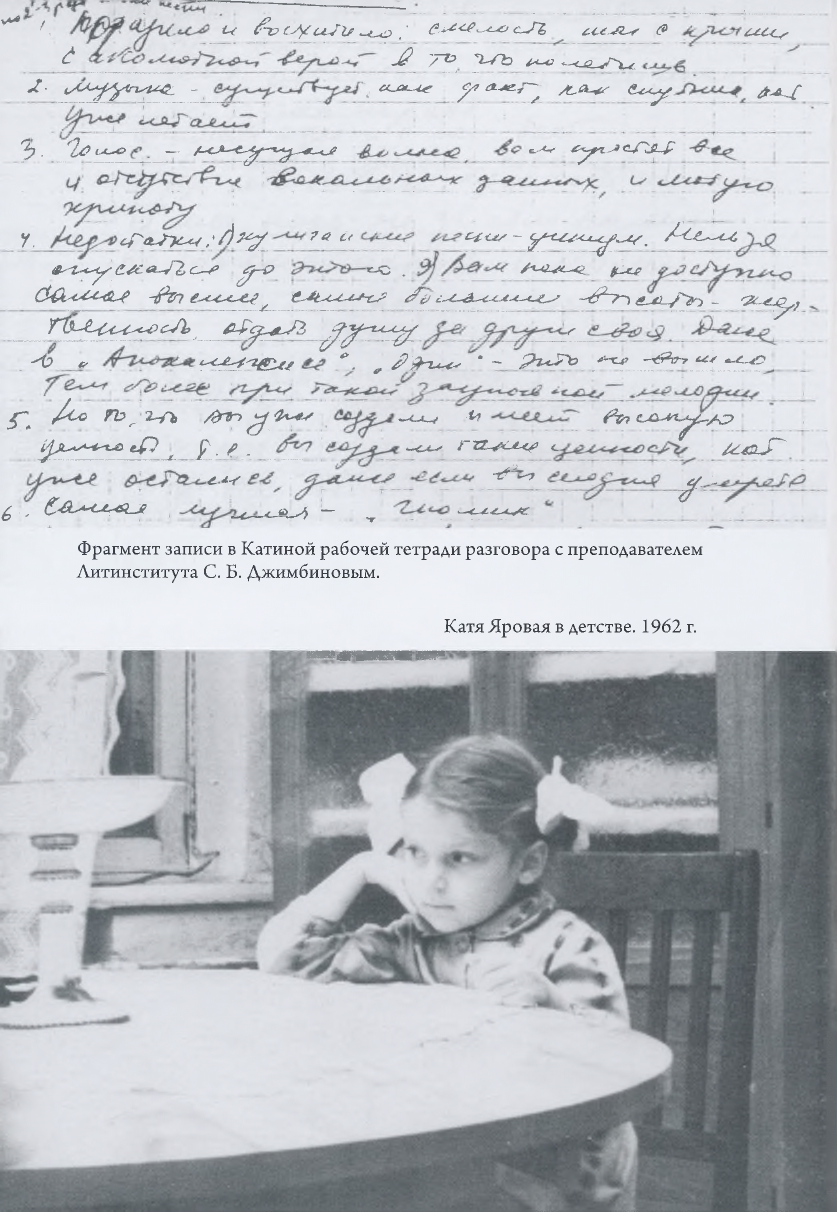 Поразило и восхитило: смелость, шаг с крыши,
с абсолютной верой в то, что полетишь
2. Музыка – существует как факт, как спутник, кот.
уже летает
3. Голос – несущая волна. вам простят все
и отсутствие вокальных данных, и легкую
хрипоту
4. Недостатки: 1) хулиганские песни – унижаем. Нельзя
опускаться до этого. 2) Вам пока не доступно
самое высшее, самые большие высоты – жер-
твенность, отдать душу за други своя. Даже
в „Апокалипсисе", „Один" – это не вышло,
Тем более при такой заупокойной мелодии.
5. Но то, что вы уже создали имеет высокую
ценность, т.е. вы создали такие ценности, кот.
уже остались, даже если вы сегодня умрете
6. Самая лучшая – „Гномик"
Фрагмент записи в Катиной рабочей тетради разговора с преподавателем
Литинститута С. Б. Джимбиновым.
Катя Яровая в детстве. 1962 г.